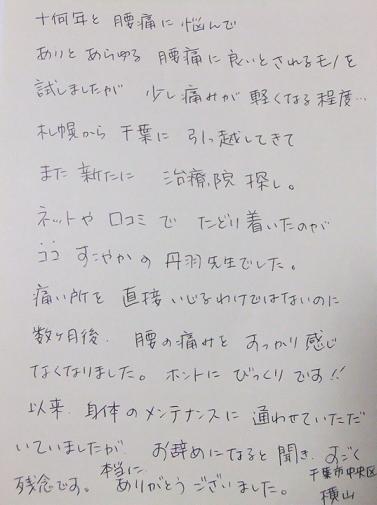 十何年と 腰痛に 悩んで
ありとあらゆる 腰痛に 良いとされるモノを
試しましたが 少し痛みが 軽くなる程度…
札幌から 千葉に 引っ越してきて
また 新たに 治療院 探し。
ネットや 口コミ で たどり着いたのが
ココ すこやかの 丹羽先生でした。
痛い所を 直接 いじるわけではないのに
数ヶ月後、 腰の痛みを すっかり 感じ
なくなりました。 ホントに びっくり です!!
以来、身体の メンテナンスに 通わせていただ
いていましたが、 お辞めになると 聞き、すごく
残念です。 本当に ありがとう ございました。
千葉市中央区
横山